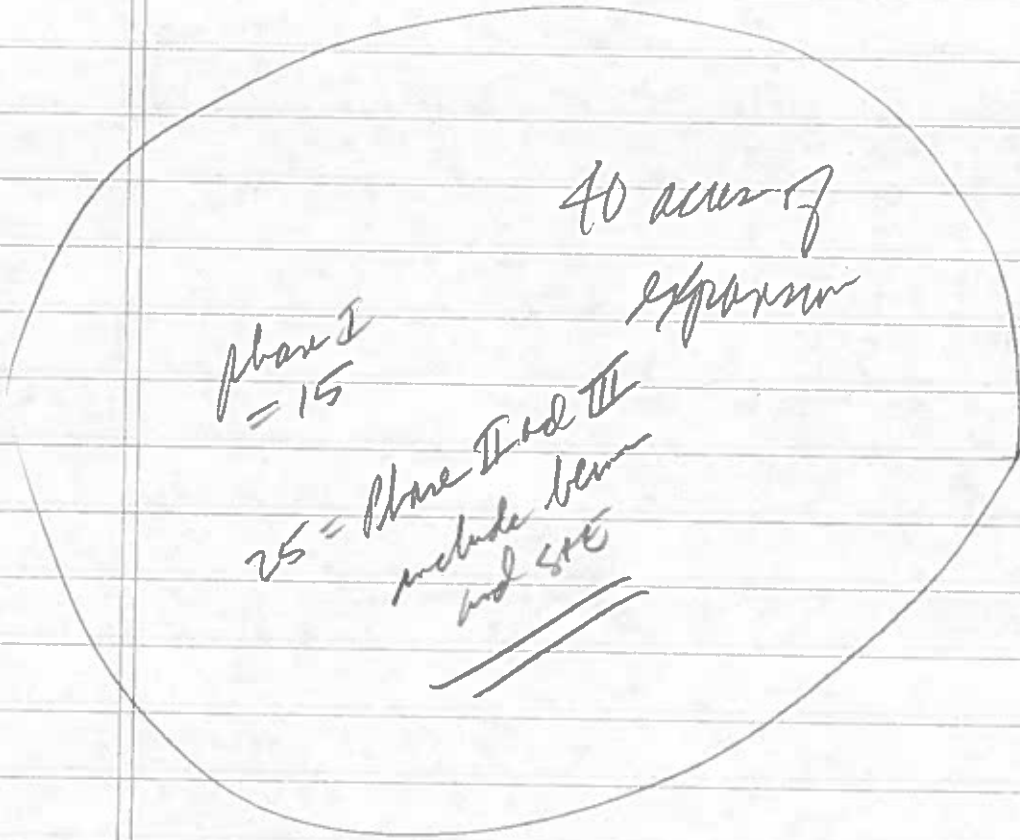 40 acres of
expansion
phase I
= 15
25 = Phase II and III
include berm
and S&E